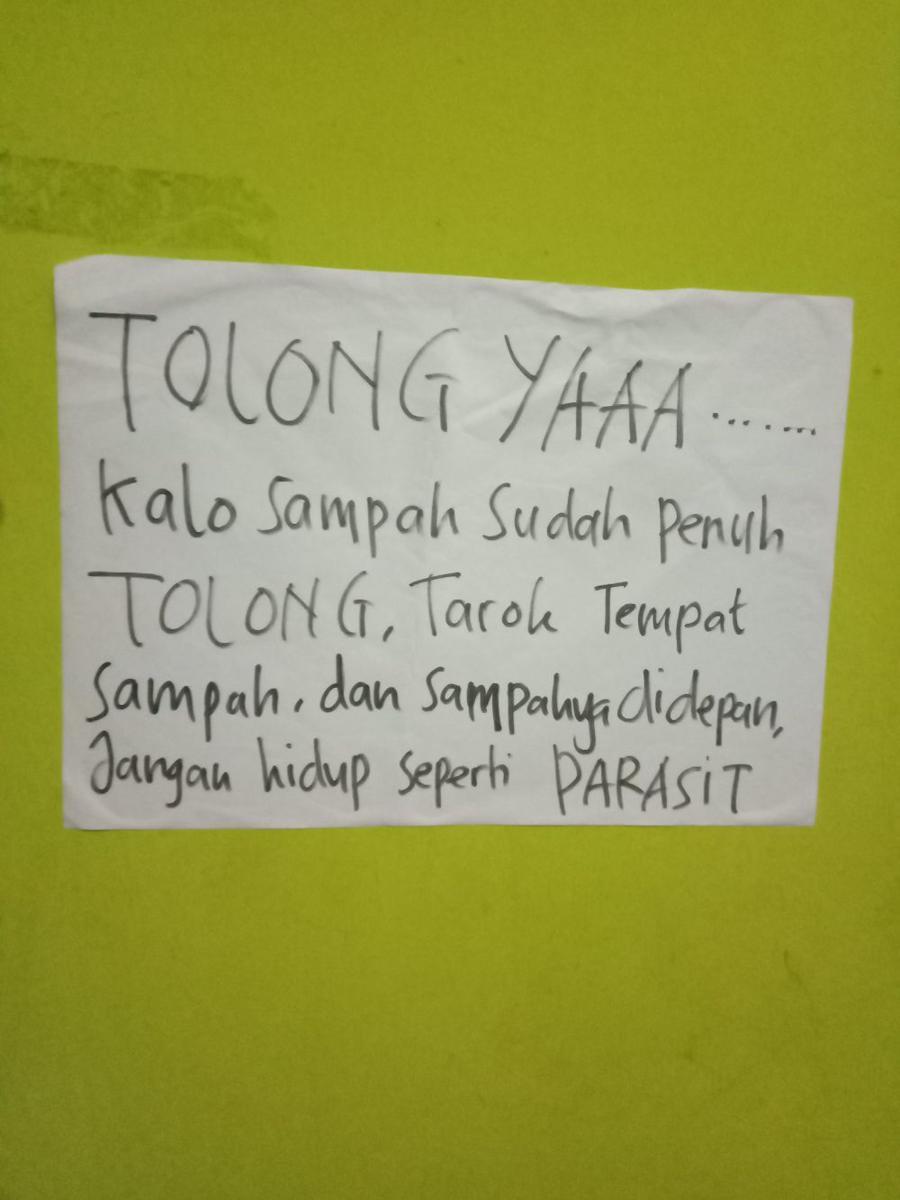 TOLONG YAAA ........
Kalo Sampah Sudah Penuh
TOLONG, Tarok Tempat
Sampah, dan Sampahya didepan,
Jangan hidup seperti PARASiT